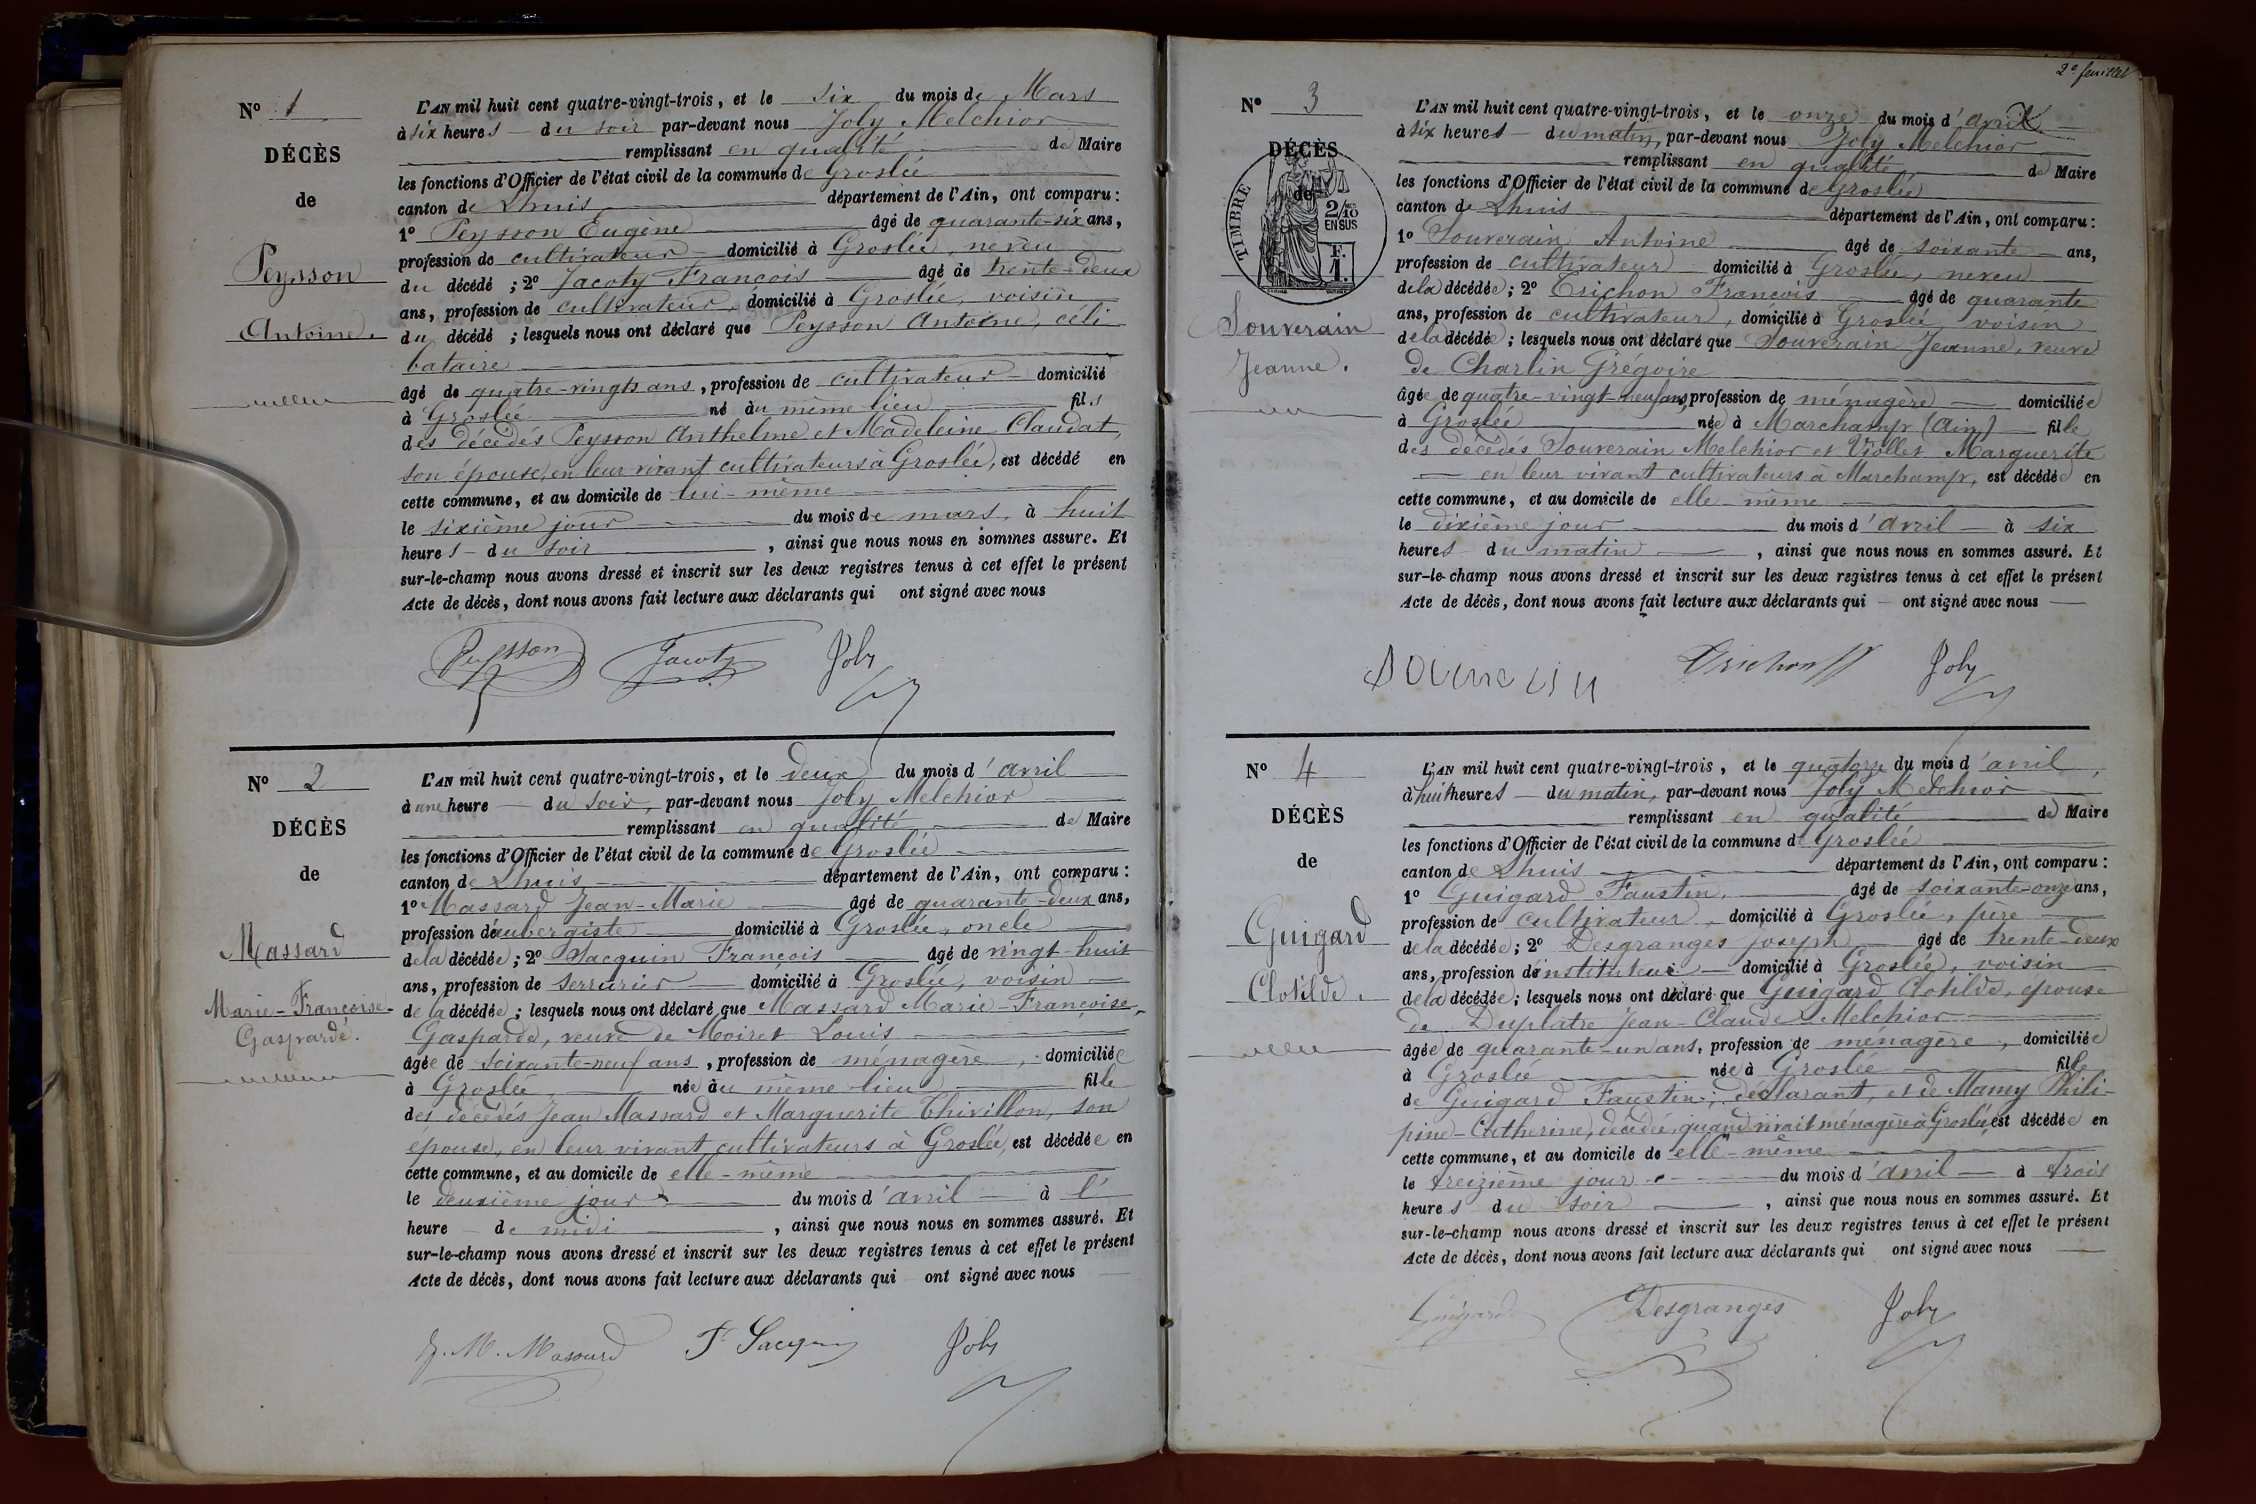 Nº 1
DÉCÈS
de
Peysson
Antoine.
L'AN mil huit cent quatre-vingt-trois, et le six du mois de Mars
à six heures du soir par-devant nous Joly Melchior
remplissant en qualité de Maire
les fonctions d'Officier de l'état civil de la commune de Groslée
canton de Lhuis département de l'Ain, ont comparu :
1º Peysson Eugène âgé de quarante-six ans,
profession de cultivateur domicilié à Groslée, neveu
du décédé ; 2º Jacoty François âgé de trente-deux
ans, profession de cultivateur, domicilié à Groslée, voisin
du décédé ; lesquels nous ont déclaré que Peysson Antoine, céli
bataire
âgé de quatre-vingts ans, profession de cultivateur domicilié
à Groslée né au même lieu fils
des décédés Peysson Anthelme et Madeleine Claudat,
son épouse, en leur vivant cultivateurs à Groslée, est décédé en
cette commune, et au domicile de lui-même
le sixième jour du mois de mars, à huit
heures du soir, ainsi que nous nous en sommes assuré. Et
sur-le-champ nous avons dressé et inscrit sur les deux registres tenus à cet effet le présent
Acte de décès, dont nous avons fait lecture aux déclarants qui ont signé avec nous
Peysson Jacoty Joly
Nº 2
DÉCÈS
de
Massard
Marie-Françoise-
Gasparde.
L'AN mil huit cent quatre-vingt-trois, et le deux du mois d'avril
à une heure du soir, par-devant nous Joly Melchior
remplissant en qualité de Maire
les fonctions d'Officier de l'état civil de la commune de Groslée
canton de Lhuis département de l'Ain, ont comparu :
1º Massard Jean-Marie âgé de quarante-deux ans,
profession d'aubergiste domicilié à Groslée, oncle
de la décédée ; 2º Jacquin François âgé de vingt-huit
ans, profession de serrurier domicilié à Groslée, voisin
de la décédée ; lesquels nous ont déclaré que Massard Marie-Françoise-
Gasparde, veuve de Moiret Louis
âgée de soixante-neuf ans, profession de ménagère, domiciliée
à Groslée née au même lieu fille
des décédés Jean Massard et Marguerite Thivillon, son
épouse, en leur vivant cultivateurs à Groslée, est décédée en
cette commune, et au domicile de elle-même
le deuxième jour du mois d'avril à l'
heure de midi, ainsi que nous nous en sommes assuré. Et
sur-le-champ nous avons dressé et inscrit sur les deux registres tenus à cet effet le présent
Acte de décès, dont nous avons fait lecture aux déclarants qui ont signé avec nous
J. M. Massard F. Jacquin Joly
2e feuillet
Nº 3
DÉCÈS
de
TIMBRE
2/10
EN SUS
F.
1.
Souverain
Jeanne.
L'AN mil huit cent quatre-vingt-trois, et le onze du mois d'avril
à six heures du matin, par-devant nous Joly Melchior
remplissant en qualité de Maire
les fonctions d'Officier de l'état civil de la commune de Groslée
canton de Lhuis département de l'Ain, ont comparu :
1º Souverain Antoine âgé de soixante ans,
profession de cultivateur domicilié à Groslée, neveu
de la décédée ; 2º Trichon François âgé de quarante
ans, profession de cultivateur, domicilié à Groslée voisin
de la décédée ; lesquels nous ont déclaré que Souverain Jeanne, veuve
de Charlin Grégoire
âgée de quatre-vingt-neuf ans, profession de ménagère domiciliée
à Groslée née à Marchamp (Ain) fille
des décédés Souverain Melchior et Viollet Marguerite
en leur vivant cultivateurs à Marchamp, est décédée en
cette commune, et au domicile de elle-même
le dixième jour du mois d'avril à six
heures du matin, ainsi que nous nous en sommes assuré. Et
sur-le-champ nous avons dressé et inscrit sur les deux registres tenus à cet effet le présent
Acte de décès, dont nous avons fait lecture aux déclarants qui ont signé avec nous
Souverain Trichon Joly
Nº 4
DÉCÈS
de
Guigard
Clotilde.
L'AN mil huit cent quatre-vingt-trois, et le quatorze du mois d'avril,
à huit heures du matin, par-devant nous Joly Melchior
remplissant en qualité de Maire
les fonctions d'Officier de l'état civil de la commune de Groslée
canton de Lhuis département de l'Ain, ont comparu :
1º Guigard Faustin, âgé de soixante-onze ans,
profession de cultivateur domicilié à Groslée, père
de la décédée ; 2º Desgranges Joseph âgé de trente-deux
ans, profession d'instituteur domicilié à Groslée, voisin
de la décédée ; lesquels nous ont déclaré que Guigard Clotilde, épouse
de Duplatre Jean-Claude Melchior
âgée de quarante-un ans, profession de ménagère, domiciliée
à Groslée née à Groslée fille
de Guigard Faustin, déclarant, et de Mamy Phili-
pine-Catherine, décédée, quand vivait ménagère à Groslée, est décédée en
cette commune, et au domicile de elle-même
le treizième jour du mois d'avril à trois
heures du soir, ainsi que nous nous en sommes assuré. Et
sur-le-champ nous avons dressé et inscrit sur les deux registres tenus à cet effet le présent
Acte de décès, dont nous avons fait lecture aux déclarants qui ont signé avec nous
Guigard Desgranges Joly